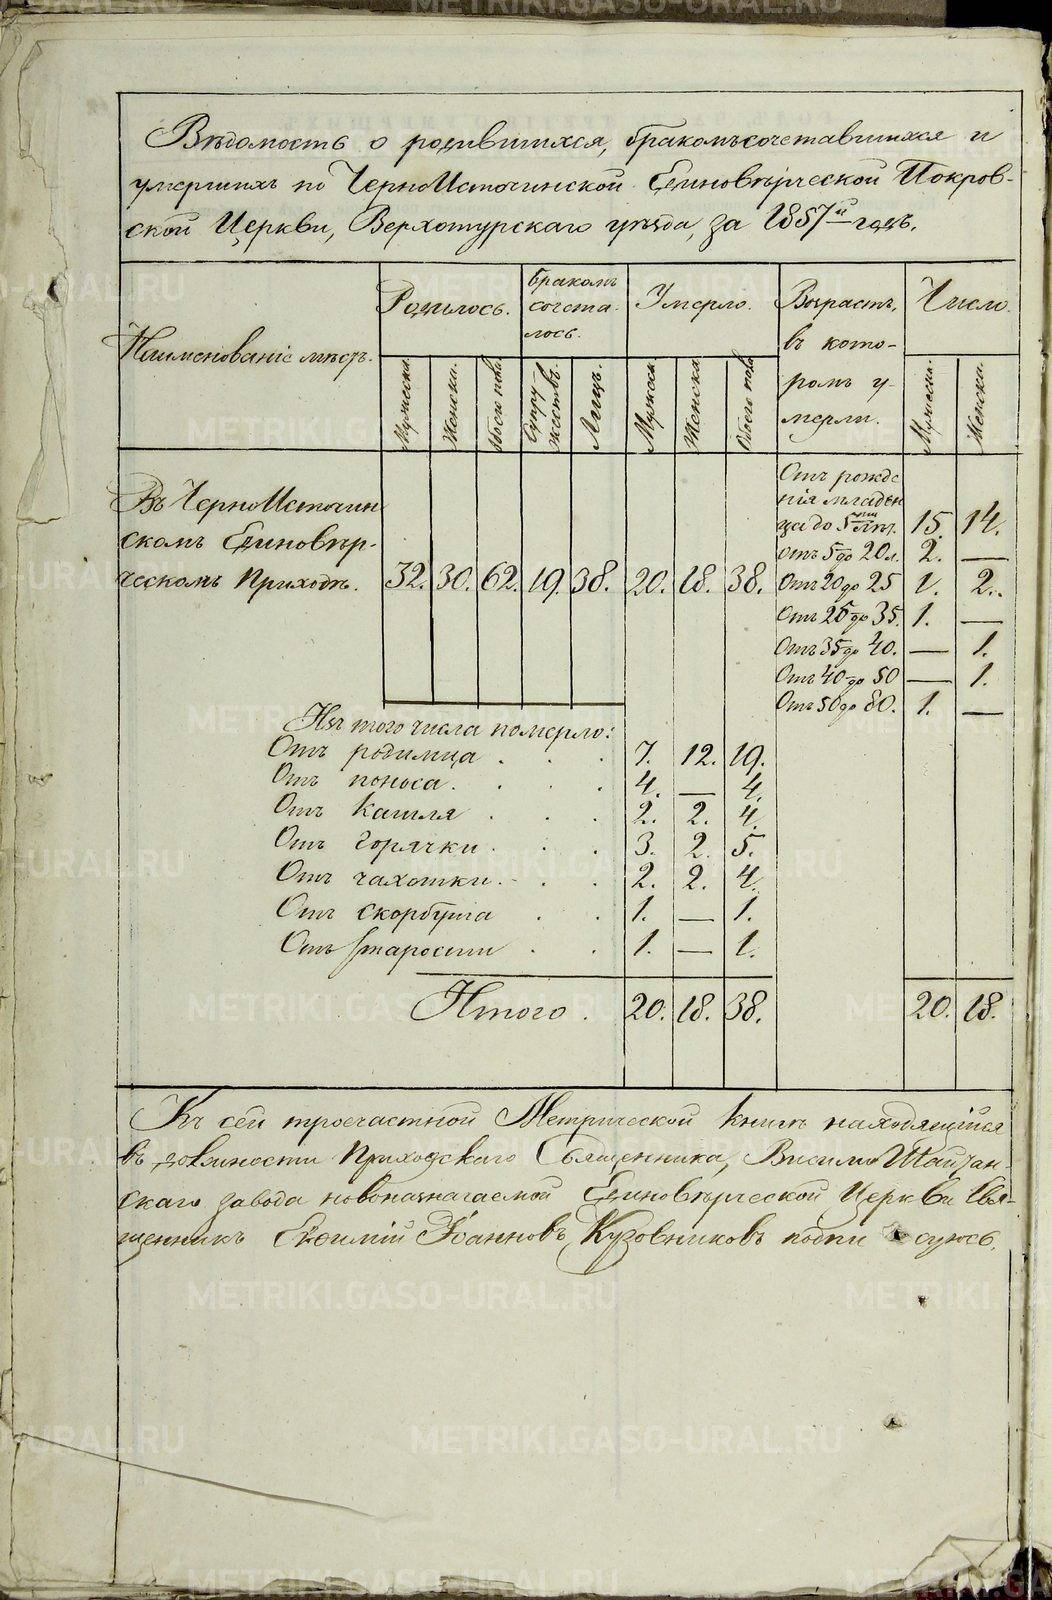 Вѣдомость о родившихся, бракомъсочетавшихся и
умершихъ по ЧерноИсточинской Единовѣрческой Покров-
ской Церкви, Верхотурскаго уѣзда, за 1857й годъ.
Наименованіе мѣстъ.
Родилось.
Бракомъ
сочета-
лось.
Умерло.
Возрастъ,
въ кото-
ромъ у-
мерли.
Число.
Мужеска.
Женска.
Обоего пола
Супру-
жествъ.
Лицъ.
Мужеска
Женска
Обоего пола
Мужеска.
Женска.
Въ ЧерноИсточин
скомъ Единовѣр-
ческомъ Приходѣ. 32. 30. 62. 19. 38. 20. 18. 38.
Отъ рожде
нія младен
ца до 5ти лѣт. 15. 14.
Отъ 5 до 20 л. 2. —
Отъ 20 до 25 1. 2.
Отъ 25 до 35. 1. —
Отъ 35 до 40. — 1.
Отъ 40 до 50 — 1.
Отъ 50 до 80. 1. —
Изъ того числа померло:
Отъ родимца . . . 7. 12. 19.
Отъ поноса . . . 4. — 4.
Отъ кашля . . . 2. 2. 4.
Отъ горячки . . . 3. 2. 5.
Отъ чахотки . . . 2. 2. 4.
Отъ скорбута . . 1. — 1.
Отъ старости . . 1. — 1.
Итого . 20. 18. 38. 20. 18.
Къ сей троечастной Метрической книгѣ находящійся
въ должности Приходскаго Священника, Висимо Шайтан-
скаго завода новоназначаемой Единовѣрческой Церкви Свя-
щенникъ Евѳимій Іоанновъ Кузовниковъ подпи суюсь.
METRIKI.GASO-URAL.RU